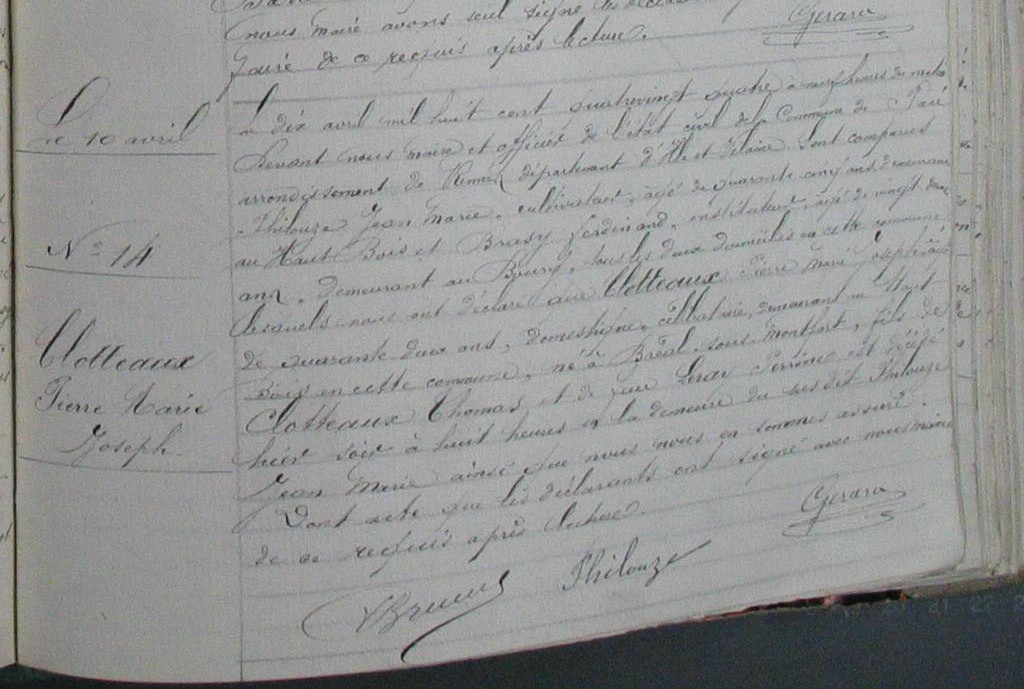 nous maire avons seul signé les déclarants
de ce requis après lecture.
Gerard
Le 10 avril
N° 14
Clotteaux
Pierre Marie
Joseph
Le dix avril mil huit cent quatrevingt quatre à neuf heures du matin
Devant nous maire et officier de l'état civil de la Commune de Pacé
arrondissement de Rennes département d'Ille et Vilaine. Sont comparus
Philouze Jean Marie, cultivateur, âgé de quarante cinq ans, demeurant
au Haut Bois et Brasy Ferdinand, instituteur, âgé de vingt deux
ans, demeurant au Bourg, tous les deux domiciliés en cette commune
lesquels nous ont déclaré que Clotteaux Pierre Marie Joseph âgé
de quarante deux ans, domestique, célibataire, demeurant au Haut
Bois en cette commune, né à Bréal-sous-Montfort, fils de
Clotteaux Thomas et de feue Leray Perrine est décédé
hier soir à huit heures en la demeure du susdit Philouze
Jean Marie ainsi que nous nous en sommes assuré.
Dont acte que les déclarants ont signé avec nous maire
de ce requis après lecture.
Gerard
Philouze